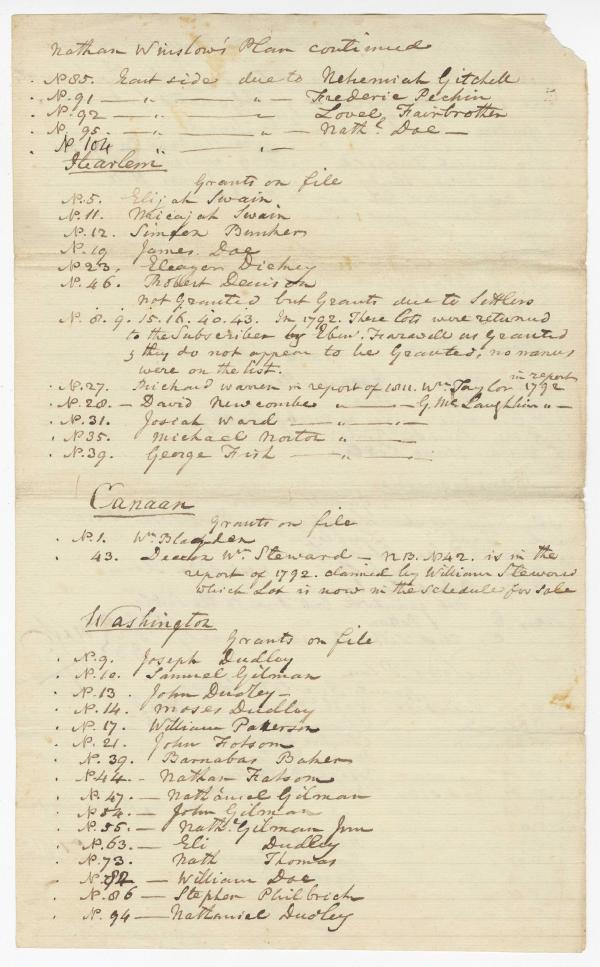 Nathan Winslow's Plan continued
. No. 85. East side due to Nehemiah Gitchell
. No. 91 — " — " — Frederic Pechin
. No. 92 — " — " Lovel Fairbrother
. No. 95. — " — " — Nathl. Doe —
No 104 — " — " —
Harlem
Grants on file
. No. 5. Elijah Swain
. No. 11. Micajah Swain
. No. 12. Simeon Bunkers
. No. 19 James Doe
. No. 23. Eleazer Dickney
. No. 46. Robert Denison
not Granted but Grants due to Settlers
. No. 8. 9. 15. 16. 40. 43. In 1792. These lots were returned
to the Subscriber by Ebenr. Farwell as Granted
& they do not appear to be Granted, no names
were on the list.
in report
. No. 27. Richard Warren in report of 1811. Wm Taylor 1792
. No. 28. — David Newcombe " — G. McLaughlin " —
. No. 31. Josiah Ward — " — " —
. No 35. Michael Norton " —
. No. 39. George Fish — " — .
Canaan
Grants on file
. No. 1. Wm Blagden
. 43. Deacon Wm. Steward — N.B. No 42. is in the
report of 1792. claimed by William Steward
which Lot is now in the Schedule for Sale
Washington
Grants on file
. No. 9. Joseph Dudley
. No. 10. Samuel Gilman
. No. 13. John Dudley —
. No. 14. Moses Dudley
. No. 17. William Paterson
. No. 21. John Folsom
. No. 39. Barnabas Baker
. No 44. - Nathan Folsom
. No. 47. — Nathaniel Gilman
. No 54. — John Gilman
. No. 55. — Nathl. Gilman Junr
. No. 63. — Eli Dudley
. No. 73. Nath Thomas
. No. 82 — William Doe
. No. 86 — Stephen Philbrick
. No. 94 — Nathaniel Dudley